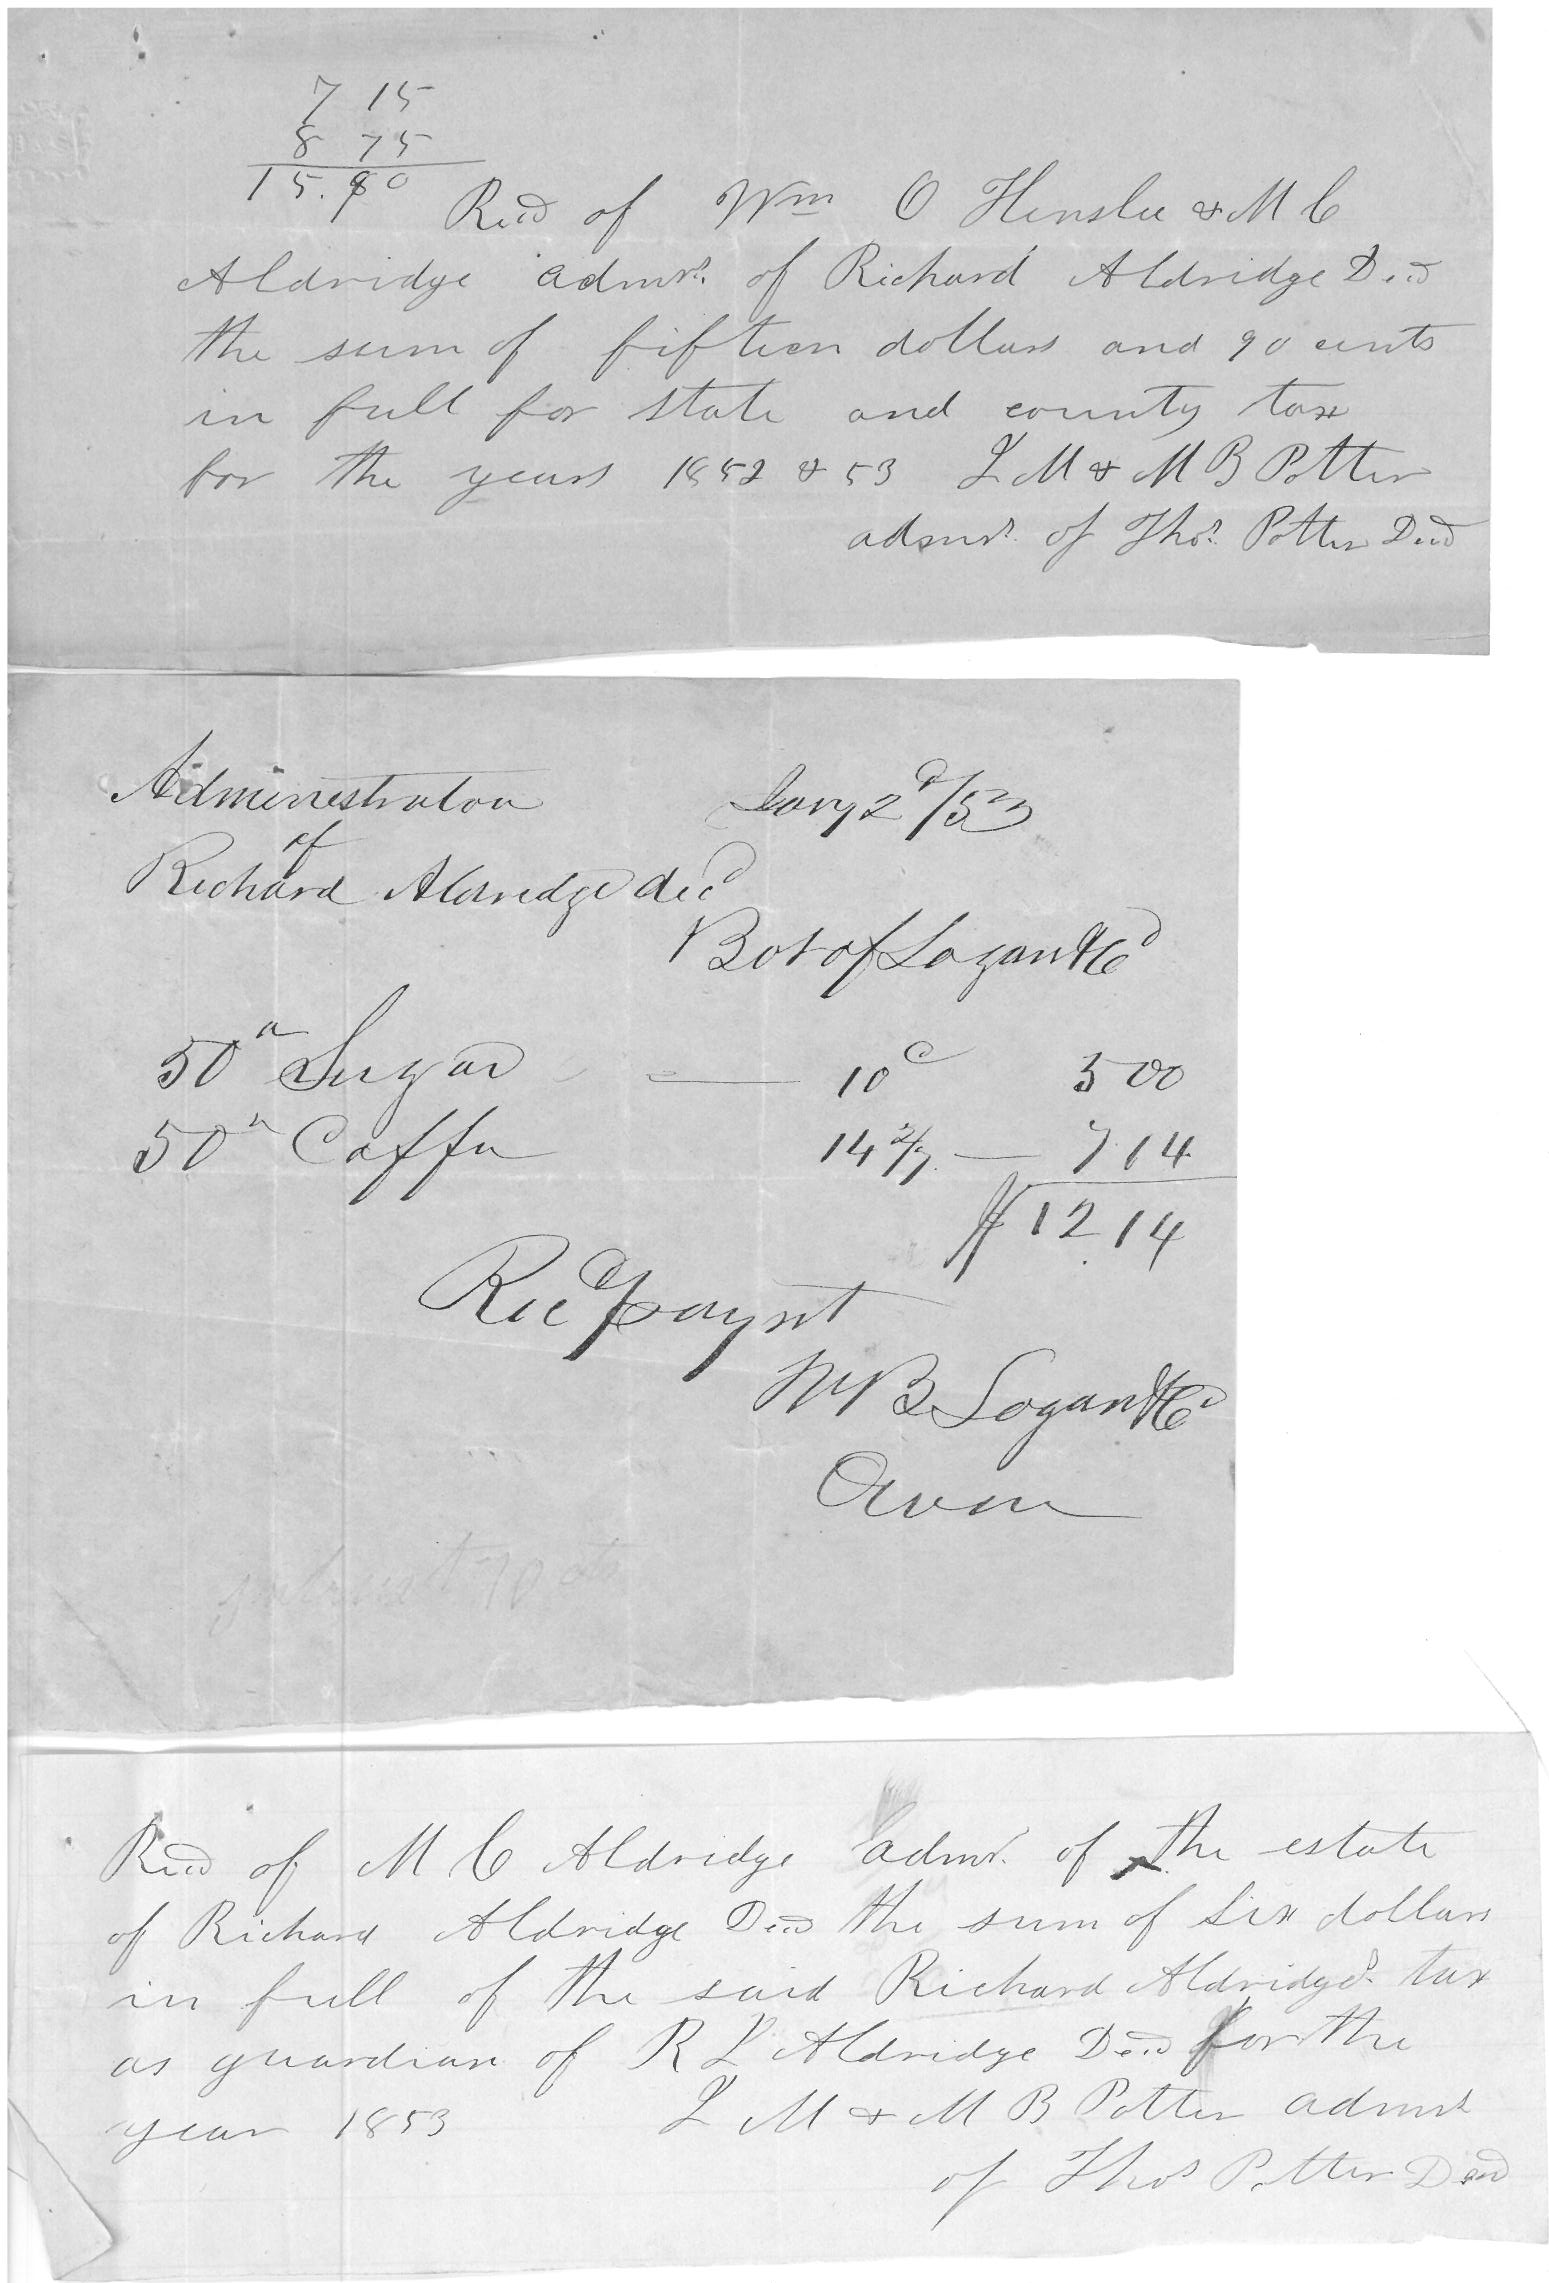 7 15
8 75
15.90
Recd of Wm O Henslee & M C
Aldridge admrs. of Richard Aldridge Decd
the sum of fifteen dollars and 90 cents
in full for state and county tax
for the years 1852 & 53 L M & M B Potter
admrs. of Thos. Potter Decd
Administrator Jany 2d/53
of
Richard Aldredge decd
Bot of Logan & Co
50 Sugar — 10c 500
50 Coffee 14 2/7 — 7.14
$12.14
Recd paymt
M B Logan & Co
interest 70 cts
Recd of M C Aldridge admr. of the estate
of Richard Aldridge Decd the sum of Six dollars
in full of the said Richard Aldridges. tax
as guardian of R L Aldridge Decd for the
year 1853 L M & M B Potter admrs
of Thos Potter Decd